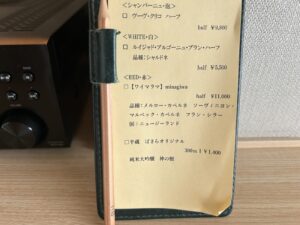 <シャンパーニュ・泡>
□ ヴーヴ・クリコ ハーフ
half ¥9,800
<WHITE・白>
□ ルイジャド・ブルゴーニュ・ブラン・ハーフ
品種:シャルドネ
half ¥5,500
<RED・赤>
□【ワイマラマ】minagiwa
half ¥11,000
品種:メルロー・カベルネ ソーヴィニヨン・
マルベック・カベルネ フラン・シラー
国:ニュージーランド
□ 千蔵 ばさらオリジナル
300ml ¥1,400
純米大吟醸